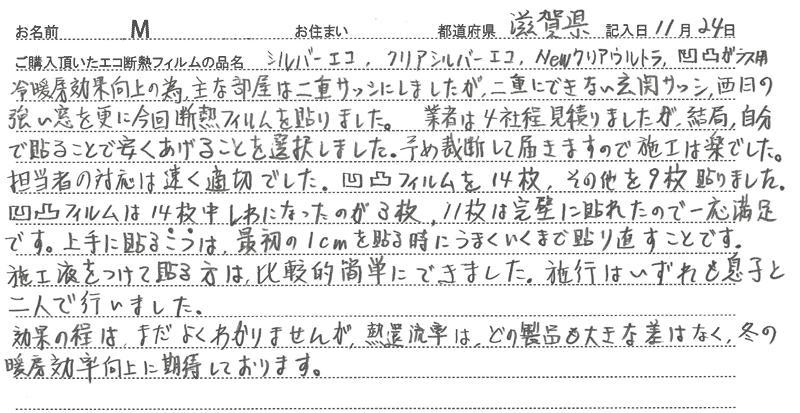 お名前 M お住まい 都道府県 滋賀県 記入日 11月24日
ご購入頂いたエコ断熱フィルムの品名 シルバーエコ, クリアシルバーエコ, Newクリアウルトラ, 凹凸ガラス用
冷暖房効果向上の為,主な部屋は二重サッシにしましたが,二重にできない玄関サッシ,西日の
強い窓を更に今回断熱フィルムを貼りました。 業者は4社程見積りましたが,結局,自分
で貼ることで安くあげることを選択しました。予め裁断して届きますので施工は楽でした。
担当者の対応は速く適切でした。凹凸フィルムを14枚,その他を9枚貼りました。
凹凸フィルムは14枚中しわになったのが3枚,11枚は完璧に貼れたので一応満足
です。上手に貼るこつは,最初の1cmを貼る時にうまくいくまで貼り直すことです。
施工液をつけて貼る方は,比較的簡単にできました。施行はいずれも息子と
二人で行いました。
効果の程は,まだよくわかりませんが,熱還流率は,どの製品も大きな差はなく,冬の
暖房効率向上に期待しております。